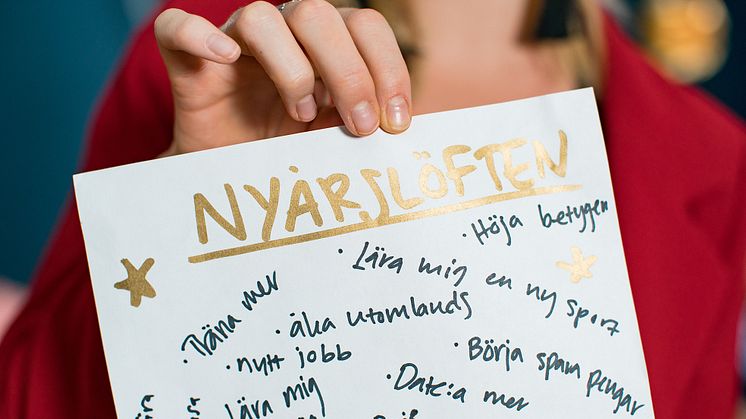 NYÅRSLÖFTEN
· Höja betygen
· Lära mig en ny sport
· Träna mer
· åka utomlands
· nytt jobb
· Börja spara pengar
· Date:a mer
Lära mig